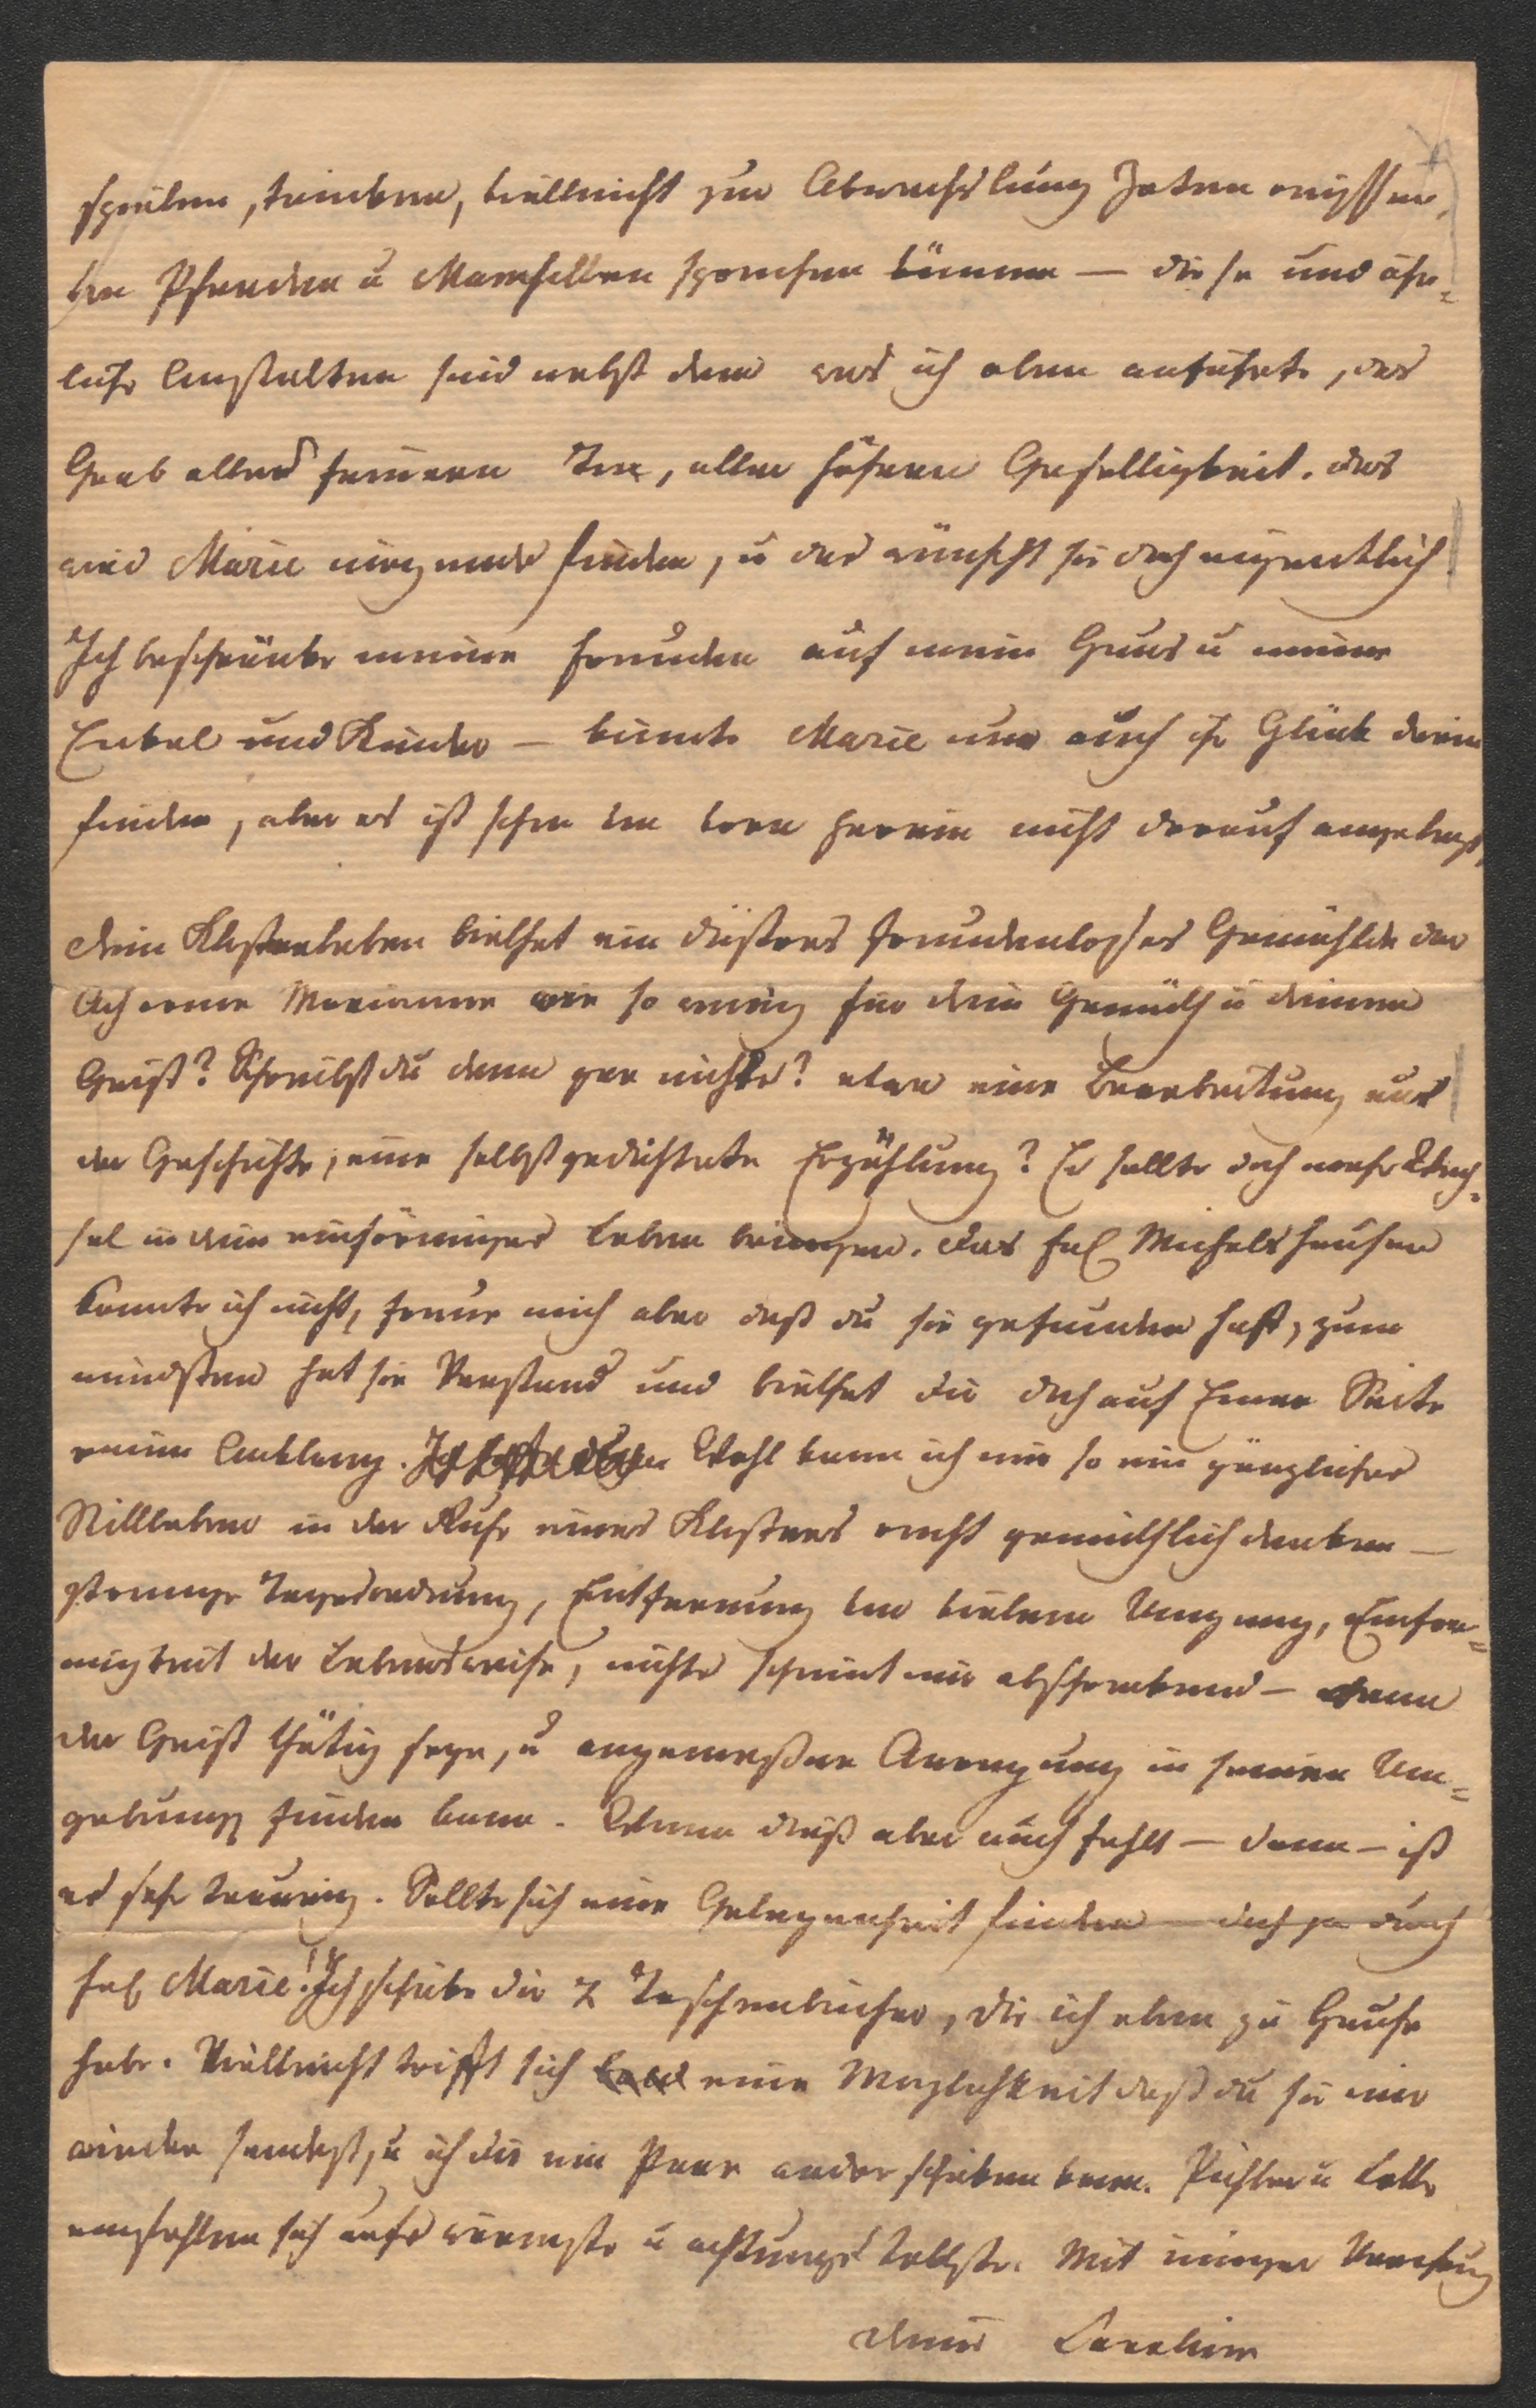 spielen, trinken, vielleicht zur Abwechslung Zoten reißen,
von Pferden u Mamsellen sprechen können — diese und ähn=
liche Anstalten sind nebst dem was ich oben anführte, das
Grab alles feinern Tons, aller höhern Geselligkeit. das
wird Marie nirgends finden, u das wünscht sie doch eigentlich
Ich beschränke meine Freuden auf mein Haus u meine
Enkel und Kinder — könnte Marie nur auch ihr Glück darin
finden, aber es ist schon von vorn herein nicht darauf angelegt,
Dein Klosterleben biethet ein düstres freudenloses Gemählde dar
Ach arme Marianne wie so wenig für dein Gemüth u deinen
Geist? Schreibst du denn gar nichts? etwa eine Bearbeitung aus
der Geschichte, eine selbstgedichtete Erzählung? Es sollte doch mehr Wech=
sel in dein einförmiges Leben bringen. Das Frl Michelshausen
kannte ich nicht, freue mich aber daß du sie gefunden hast, zum
mindsten hat sie Verstand und biethet dir doch auf Einer Seite
einen Anklang. Wohl kann ich mir so ein gänzliches
Stillleben in der Ruhe eines Klosters recht gemüthlich denken —
strenge Tagesordnung, Entfernung von vielem Umgang, Einför=
migkeit der Lebensweise, nichts scheint mir abschreckend — wenn
der Geist thätig seyn, u angemeßne Anregung in seinen Um=
gebungen finden kann. Wenn dieß aber auch fehlt — dann — ist
es sehr traurig. Sollte sich eine Gelegenheit finden — doch ja durch
Frl Marie! Ich schicke dir 2 Taschenbücher, die ich eben zu Hause
habe. Vielleicht trifft sich bald eine Möglichkeit daß du sie mir
wieder sendest, u ich dir ein Paar andre schicken kann. Pichler u Lotte
empfehlen sich aufs wärmste u achtungsvollste. Mit inniger Verehrung
deine Caroline